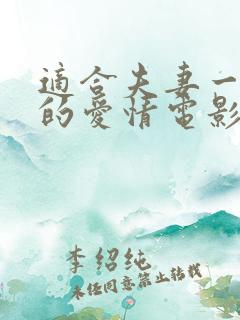 適合夫妻一
的愛情電影
李紹纯
未经同意禁止转载